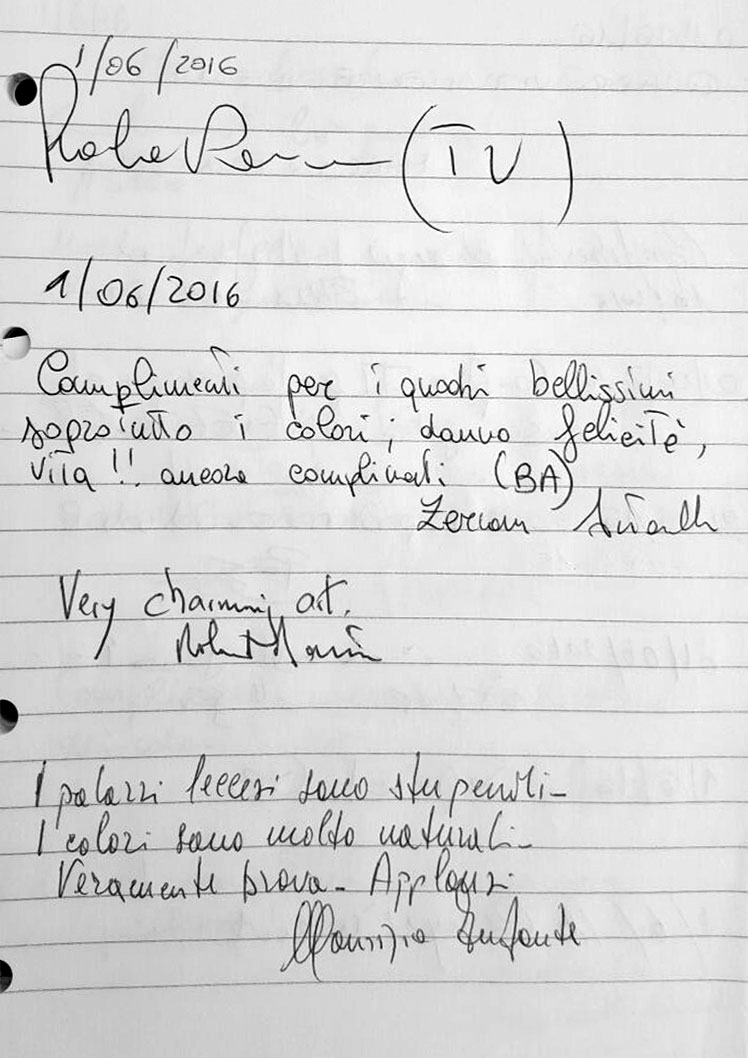 1/06/2016
(TV)
1/06/2016
Complimenti per i quadri bellissimi
soprotutto i colori, danno felicità,
vita!! ancora complimenti (BA)
Very charming art.
Robert
I palazzi leccesi sono stupendi-
I colori sono molto naturali-
Veramente brava- Applausi-
Maurizio Infante